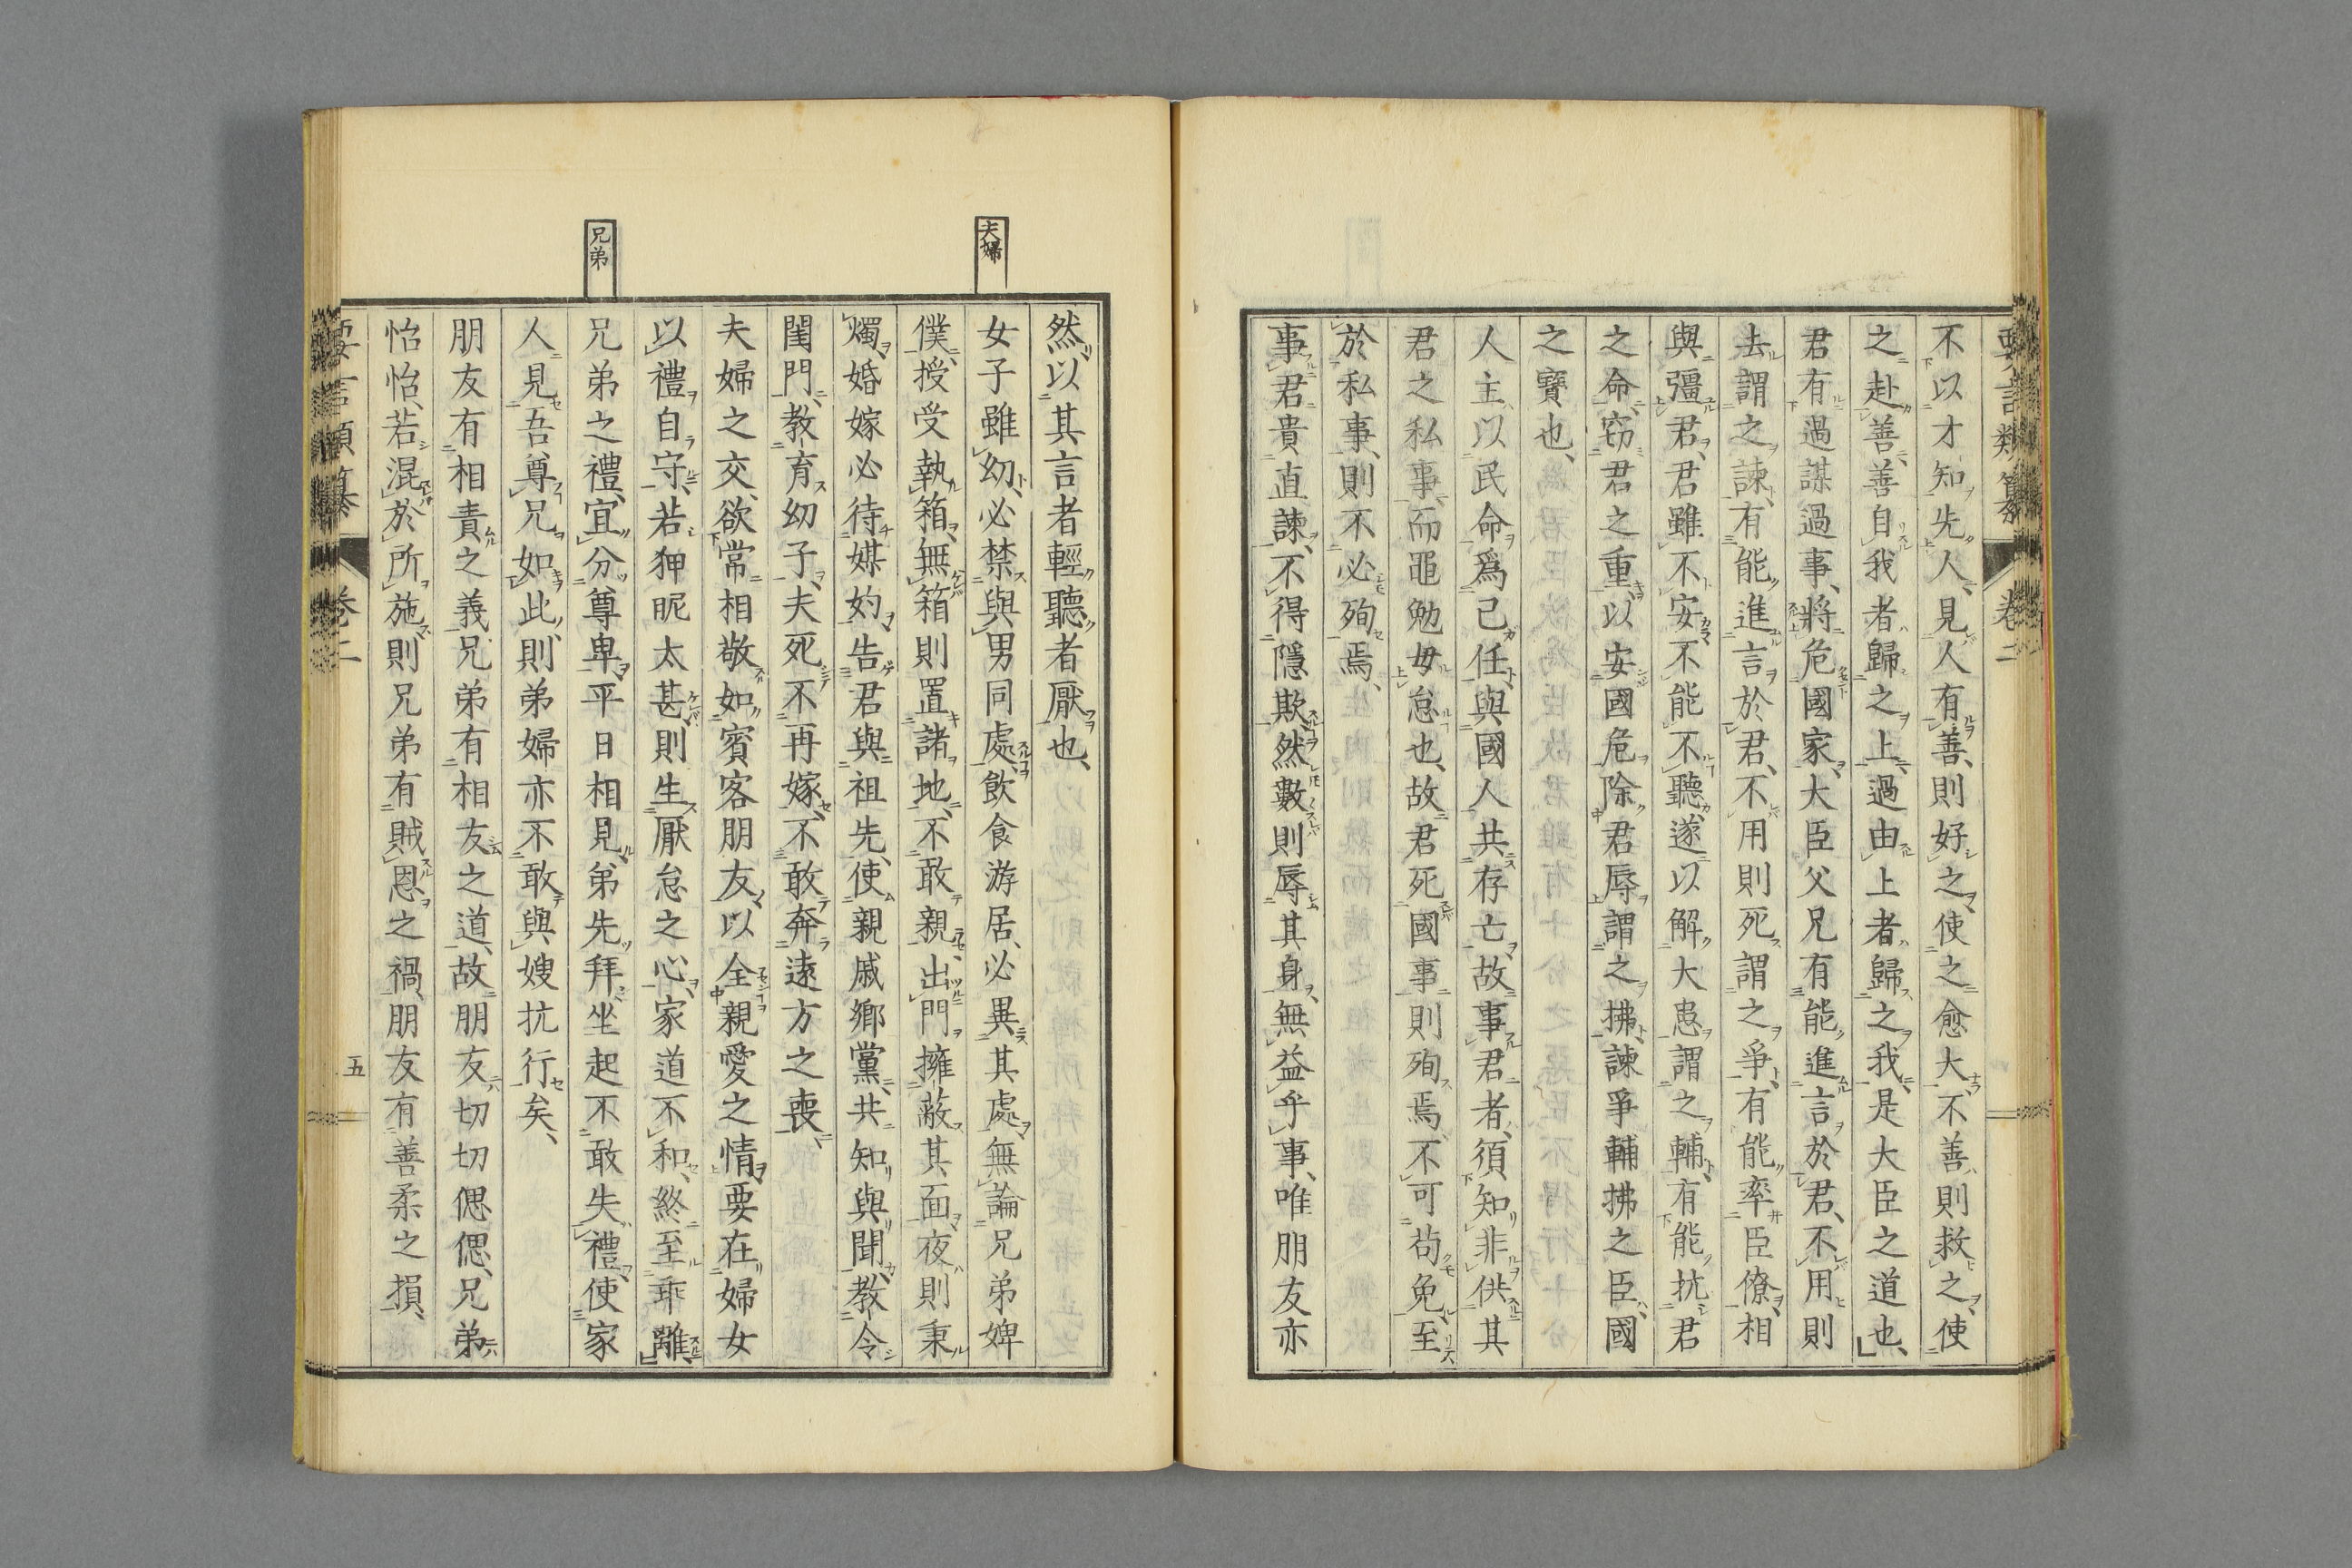 不以才知先人、見人有善、則好之、使之愈大、不善則救之、使
之赴善、善自我者歸之上、過由上者歸之我、是大臣之道也、
君有過謀過事、將危國家、大臣父兄有能進言於君、不用則
去謂之諫、有能進言於君、不用則死謂之爭、有能率臣僚、相
與彊君、君雖不安不能不聽、遂以解大患謂之輔、有能抗君
之命、窃君之重、以安國危除君辱謂之拂、諫爭輔拂之臣、國
之寶也、
人主以民命爲己任、與國人共存亡、故事君者、須知非供其
君之私事、而黽勉毋怠也、故君死國事則殉焉、不可苟免、至
於私事、則不必殉焉、
事君貴直諫、不得隱欺、然數則辱其身、無益乎事、唯朋友亦
然、以其言者輕聽者厭也、
夫婦
女子雖幼、必禁與男同處、飲食游居、必異其處、無論兄弟婢
僕、授受執箱、無箱則置諸地、不敢親、出門擁蔽其面、夜則秉
燭、婚嫁必待媒妁、告君與祖先、使親戚鄉黨、共知與聞、教令
閨門、教育幼子、夫死不再嫁、不敢奔遠方之喪、
夫婦之交、欲常相敬如賓客朋友、以全親愛之情、要在婦女
以禮自守、若狎昵太甚、則生厭怠之心、家道不和、終至乖離、
兄弟
兄弟之禮、宜分尊卑、平日相見、弟先拜、坐起不敢失禮、使家
人見吾尊兄如此、則弟婦亦不敢與嫂抗行矣、
朋友有相責之義、兄弟有相友之道、故朋友切切偲偲、兄弟
怡怡、若混於所施、則兄弟有賊恩之禍、朋友有善柔之損、
要言類纂 卷二
五